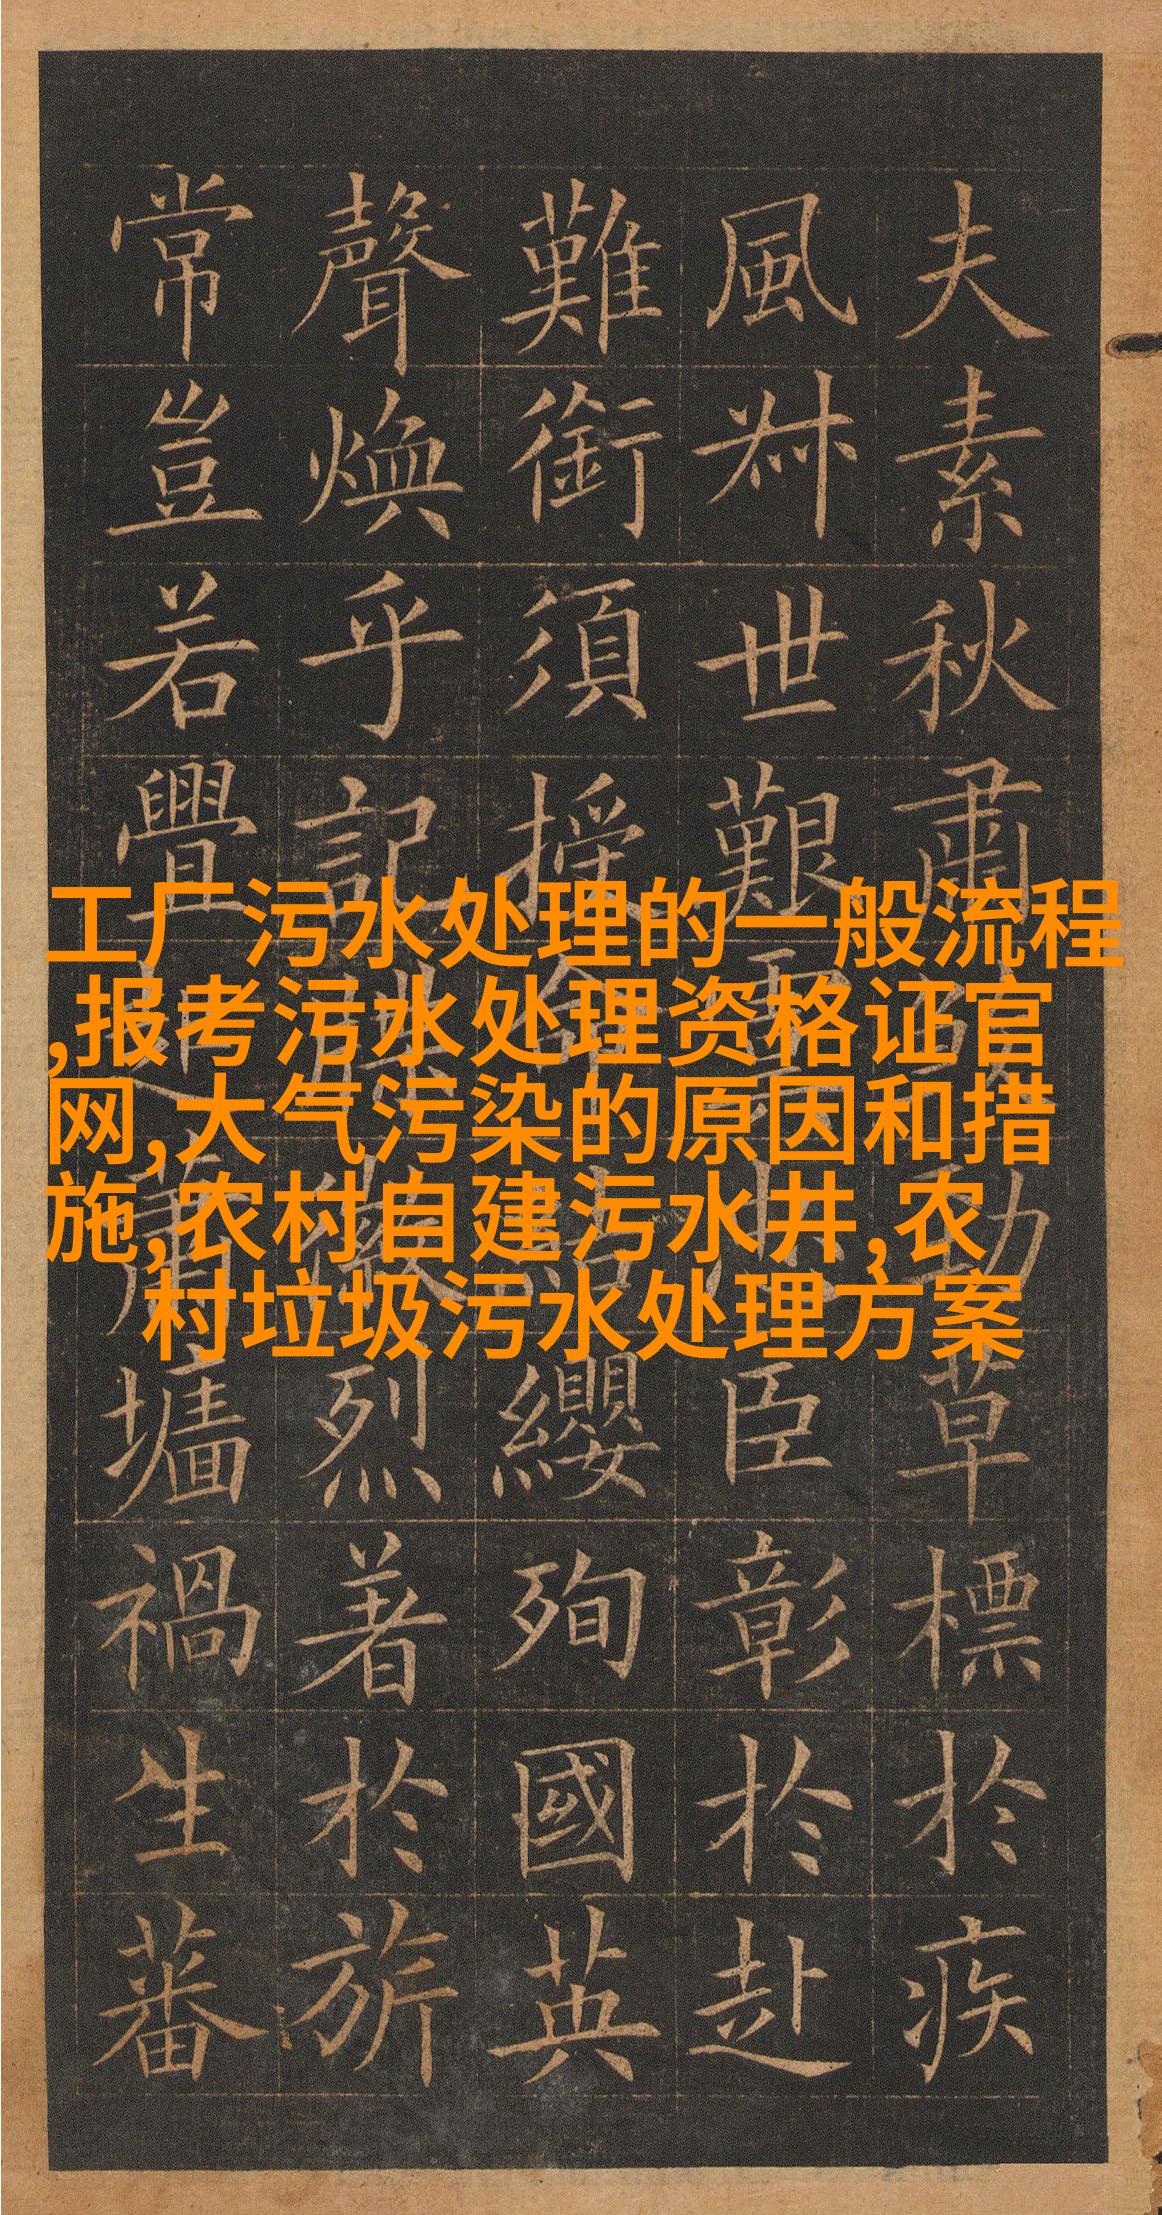 夫素秋肅勁草標於疾
風叔世艱臣彰於赴
難銜須授纓殉國英
聲煥乎記烈著於旂
常豈若釁墻禍生蕃
工厂污水处理的一般流程
,报考污水处理资格证官
网,大气污染的原因和措
施,农村自建污水井,农
村垃圾污水处理方案